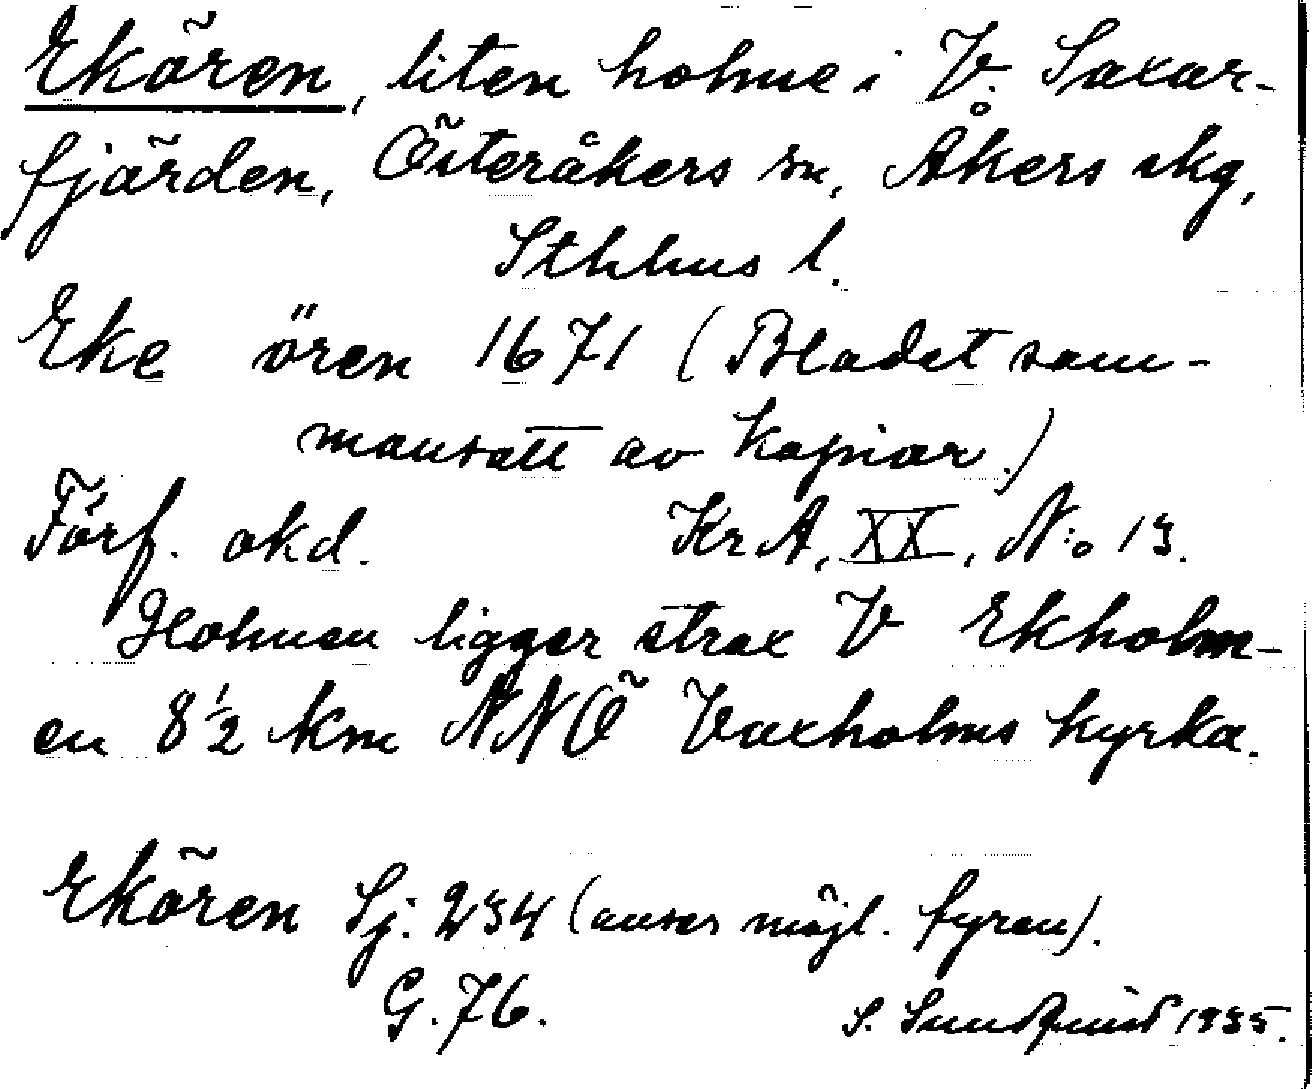 Ekören, liten holme i V. Saxar-
fjärden, Österåkers sn, Åkers skg,
Sthlms l.
Eke ören 1671 (Bladet sam-
mansatt av kopior.)
Förf. okd. KrA, XX, N:o 13.
Holmen ligger strax V Ekholm-
en 8½ km NNÖ Vaxholms kyrka.
Ekören Sj. 234 (avser möjl. fyren).
G. 76. S. Sundquist 1935.